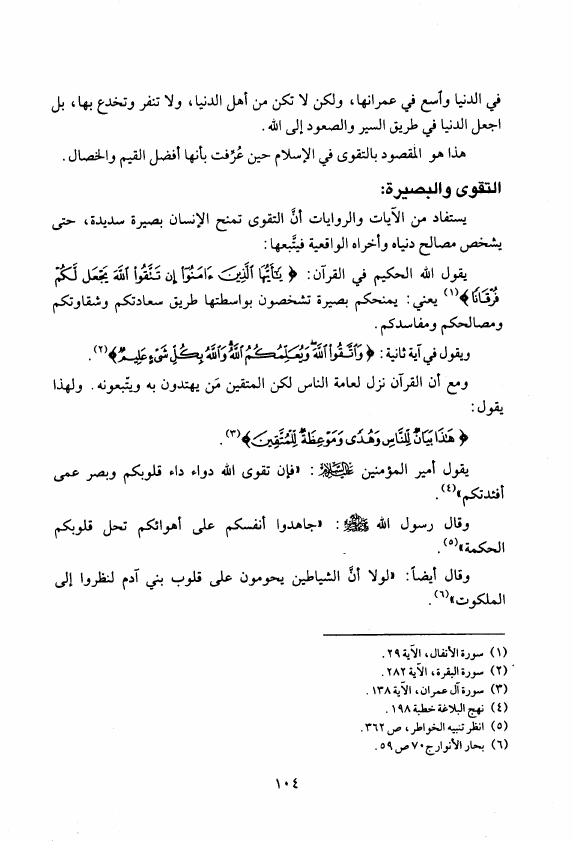 في الدنيا وأسع في عمرانها، ولكن لا تكن من أهل الدنيا، ولا تنفر وتخدع بها، بل
اجعل الدنيا في طريق السير والصعود إلى الله.
هذا هو المقصود بالتقوى في الإسلام حين عُرِّفت بأنها أفضل القيم والخصال.
التقوى والبصيرة:
يستفاد من الآيات والروايات أنَّ التقوى تمنح الإنسان بصيرة سديدة، حتى
يشخص مصالح دنياه وأخراه الواقعية فيتَّبعها:
يقول الله الحكيم في القرآن: ﴿ يَٰٓأَيُّهَا ٱلَّذِينَ ءَامَنُوٓاْ إِن تَتَّقُواْ ٱللَّهَ يَجْعَل لَّكُمْ
فُرْقَانًا﴾(١) يعني: يمنحكم بصيرة تشخصون بواسطتها طريق سعادتكم وشقاوتكم
ومصالحكم ومفاسدكم.
ويقول في آية ثانية: ﴿ وَٱتَّقُواْ ٱللَّهَ وَيُعَلِّمُكُمُ ٱللَّهُ وَٱللَّهُ بِكُلِّ شَىْءٍ عَلِيمٌ﴾(٢).
ومع أن القرآن نزل لعامة الناس لكن المتقين مَن يهتدون به ويتّبعونه. ولهذا
يقول:
﴿ هَٰذَا بَيَانٌ لِّلنَّاسِ وَهُدًى وَمَوْعِظَةٌ لِّلْمُتَّقِينَ﴾(٣).
يقول أمير المؤمنين عليه السلام: «فإن تقوى الله دواء داء قلوبكم وبصر عمى
أفئدتكم»(٤).
وقال رسول الله ﷺ: «جاهدوا أنفسكم على أهوائكم تحل قلوبكم
الحكمة»(٥).
وقال أيضاً: «لولا أنَّ الشياطين يحومون على قلوب بني آدم لنظروا إلى
الملكوت»(٦).
(١) سورة الأنفال، الآية ٢٩.
(٢) سورة البقرة، الآية ٢٨٢.
(٣) سورة آل عمران، الآية ١٣٨.
(٤) نهج البلاغة خطبة ١٩٨.
(٥) انظر تنبيه الخواطر، ص ٣٦٢.
(٦) بحار الأنوارج ٧٠ ص ٥٩.
١٠٤